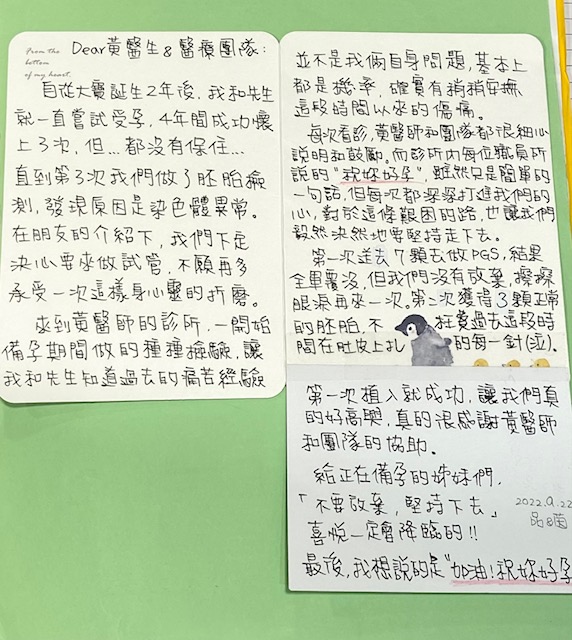 From the
bottom
of my heart
Dear黃醫生&醫療團隊:
自從大寶誕生2年後,我和先生
就一直嘗試受孕,4年間成功懷
上了3次,但…都沒有保住…
直到第3次我們做了胚胎檢
測,發現原因是染色體異常。
在朋友的介紹下,我們下定
決心要來做試管,不願再多
承受一次這樣身心靈的折磨。
來到黃醫師的診所,一開始
備孕期間做的種種檢驗,讓
我和先生知道過去的痛苦經驗
並不是我倆自身問題,基本上
都是機率,確實有稍稍安撫
這段時間以來的傷痛。
每次看診,黃醫師和團隊都很細心
說明和鼓勵。而診所內每位職員所
說的"祝妳好孕",雖然只是簡單的
一句話,但每次都深深打進我們的
心,對於這條艱困的路,也讓我們
毅然決然地要堅持走下去。
第一次送去7顆去做PGS,結果
全軍覆沒,但我們沒有放棄,擦擦
眼淚再來一次。第二次獲得3顆正常
的胚胎,不枉費過去這段時
間在肚皮上扎的每一針(泣).
第一次植入就成功,讓我們真
的好高興,真的很感謝黃醫師
和團隊的協助。
給正在備孕的姊妹們,
「不要放棄,堅持下去」
2022.9.22
喜悅一定會降臨的!!
最後,我想說的是"加油!祝妳好孕